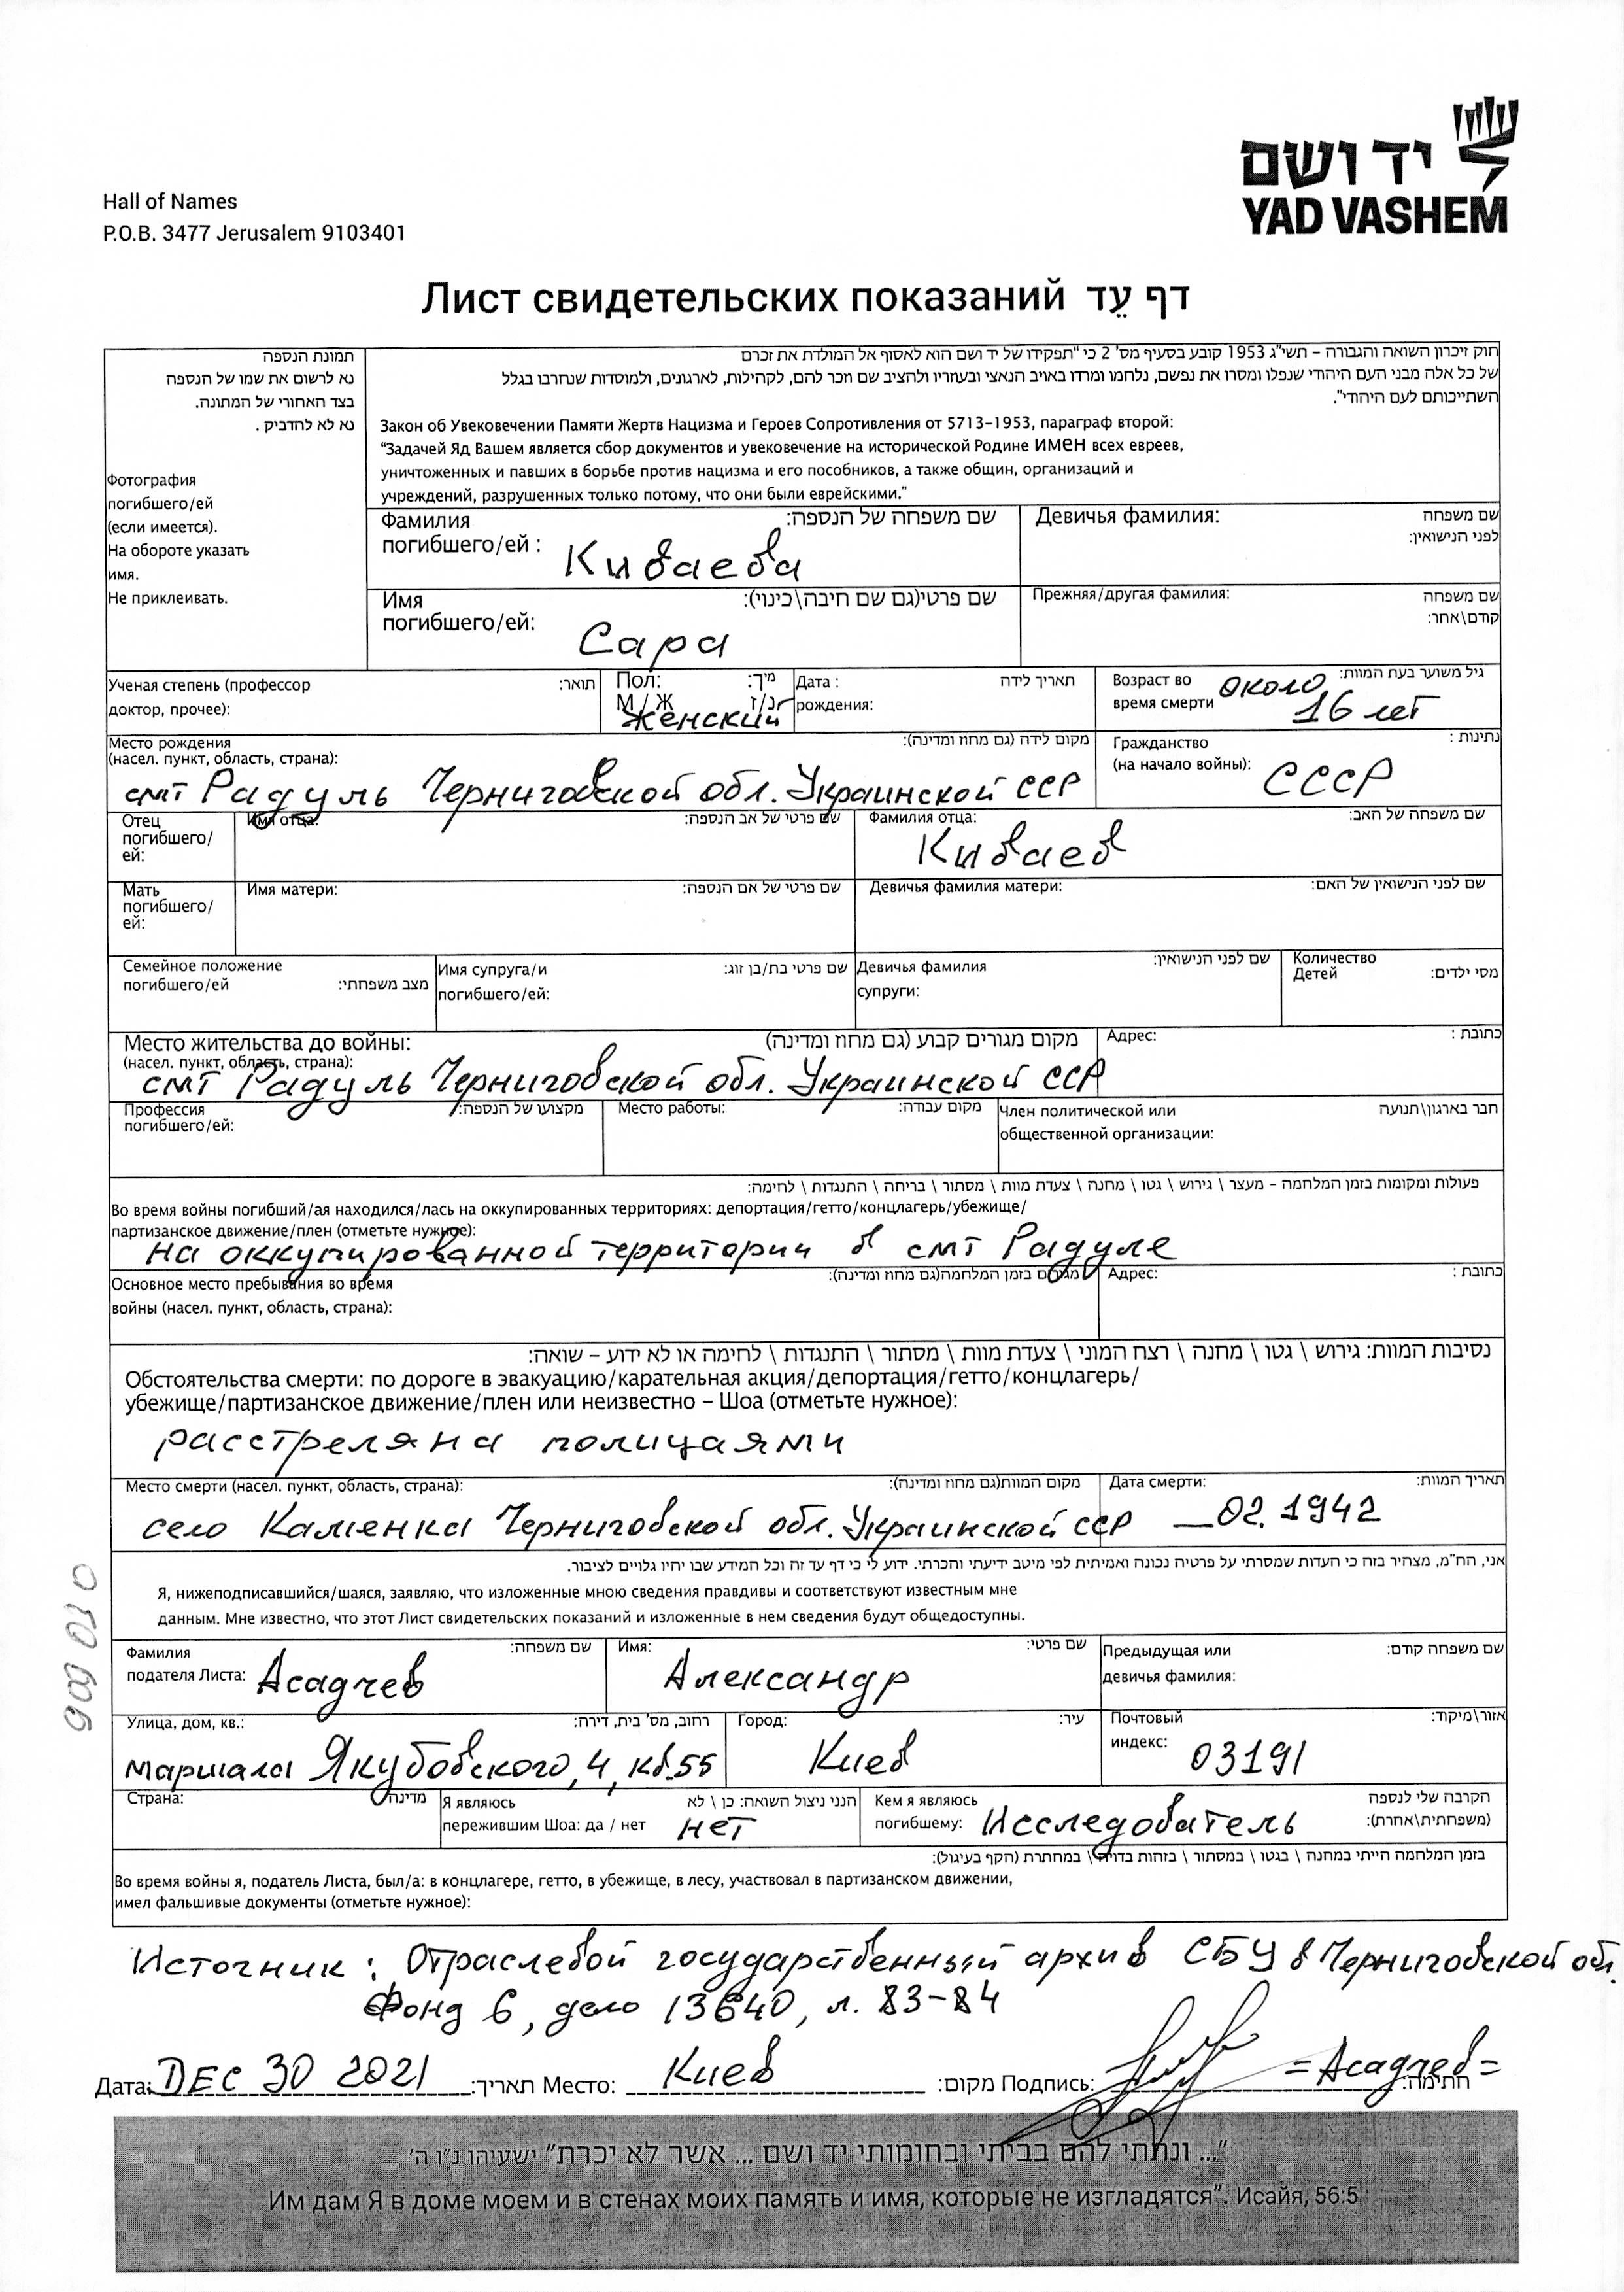 יד ושם
YAD VASHEM
Hall of Names
P.O.B. 3477 Jerusalem 9103401
Лист свидетельских показаний דף עֵד
תמונת הנספה
נא לרשום את שמו של הנספה
בצד האחורי של התמונה.
נא לא להדביק.
Фотография
погибшего/ей
(если имеется).
На обороте указать
имя.
Не приклеивать.
חוק זיכרון השואה והגבורה – תשי"ג 1953 קובע בסעיף מס' 2 כי "תפקידו של יד ושם הוא לאסוף אל המולדת את זכרם
של כל אלה מבני העם היהודי שנפלו ומסרו את נפשם, נלחמו ומרדו באויב הנאצי ובעוזריו ולהציב שם וזכר להם, לקהילות, לארגונים, ולמוסדות שנחרבו בגלל
השתייכותם לעם היהודי".
Закон об Увековечении Памяти Жертв Нацизма и Героев Сопротивления от 5713–1953, параграф второй:
“Задачей Яд Вашем является сбор документов и увековечение на исторической Родине имен всех евреев,
уничтоженных и павших в борьбе против нацизма и его пособников, а также общин, организаций и
учреждений, разрушенных только потому, что они были еврейскими.”
Фамилия погибшего/ей : שם משפחה של הנספה:
Киваева
Девичья фамилия: שם משפחה לפני הנישואין:
Имя погибшего/ей: שם פרטי(גם שם חיבה\כינוי):
Сара
Прежняя/другая фамилия: שם משפחה קודם\אחר:
Ученая степень (профессор доктор, прочее): תואר:
Пол: מין:
М / Ж ז/נ
женский
Дата рождения: תאריך לידה
Возраст во время смерти גיל משוער בעת המוות:
около
16 лет
Место рождения (насел. пункт, область, страна): מקום לידה (גם מחוז ומדינה):
смт Радуль Черниговской обл. Украинской ССР
Гражданство (на начало войны): נתינות :
СССР
Отец погибшего/ей:
Имя отца: שם פרטי של אב הנספה:
Фамилия отца: שם משפחה של האב:
Киваев
Мать погибшего/ей:
Имя матери: שם פרטי של אם הנספה:
Девичья фамилия матери: שם לפני הנישואין של האם:
Семейное положение погибшего/ей מצב משפחתי:
Имя супруга/и погибшего/ей: שם פרטי בת/בן זוג:
Девичья фамилия супруги: שם לפני הנישואין:
Количество Детей מסי ילדים:
Место жительства до войны: מקום מגורים קבוע (גם מחוז ומדינה)
(насел. пункт, область, страна):
смт Радуль Черниговской обл. Украинской ССР
Адрес: כתובת :
Профессия погибшего/ей: מקצועו של הנספה:
Место работы: מקום עבודה:
Член политической или общественной организации: חבר בארגון\תנועה
פעולות ומקומות בזמן המלחמה – מעצר \ גירוש \ גטו \ מחנה \ צעדת מוות \ מסתור \ בריחה \ התנגדות \ לחימה:
Во время войны погибший/ая находился/лась на оккупированных территориях: депортация/гетто/концлагерь/убежище/
партизанское движение/плен (отметьте нужное):
на оккупированной территории в смт Радуле
Основное место пребывания во время войны (насел. пункт, область, страна): מגורים בזמן המלחמה(גם מחוז ומדינה):
Адрес: כתובת :
נסיבות המוות: גירוש \ גטו \ מחנה \ רצח המוני \ צעדת מוות \ מסתור \ התנגדות \ לחימה או לא ידוע – שואה:
Обстоятельства смерти: по дороге в эвакуацию/карательная акция/депортация/гетто/концлагерь/
убежище/партизанское движение/плен или неизвестно – Шоа (отметьте нужное):
расстреляна полицаями
Место смерти (насел. пункт, область, страна): מקום המוות(גם מחוז ומדינה):
село Каменка Черниговской обл. Украинской ССР
Дата смерти: תאריך המוות:
__02.1942
אני, הח"מ, מצהיר בזה כי העדות שמסרתי על פרטיה נכונה ואמיתית לפי מיטב ידיעתי והכרתי. ידוע לי כי דף עד זה וכל המידע שבו יהיו גלויים לציבור.
Я, нижеподписавшийся/шаяся, заявляю, что изложенные мною сведения правдивы и соответствуют известным мне
данным. Мне известно, что этот Лист свидетельских показаний и изложенные в нем сведения будут общедоступны.
Фамилия подателя Листа: שם משפחה:
Асадчев
Имя: שם פרטי:
Александр
Предыдущая или девичья фамилия: שם משפחה קודם:
Улица, дом, кв.: רחוב, מס' בית, דירה:
маршала Якубовского, 4, кв.55
Город: עיר:
Киев
Почтовый индекс: אזור\מיקוד:
03191
Страна: מדינה
Я являюсь пережившим Шоа: да / нет הנני ניצול השואה: כן \ לא
нет
Кем я являюсь погибшему: הקרבה שלי לנספה (משפחתית\אחרת):
Исследователь
בזמן המלחמה הייתי במחנה \ בגטו \ במסתור \ בזהות בדויה \ במחתרת (הקף בעיגול):
Во время войны я, податель Листа, был/а: в концлагере, гетто, в убежище, в лесу, участвовал в партизанском движении,
имел фальшивые документы (отметьте нужное):
Источник : Отраслевой государственный архив СБУ в Черниговской обл.
Фонд 6, дело 13640, л. 83-84
Дата: DEC 30 2021 תאריך: Место: Киев מקום: Подпись: =Асадчев= חתימה:
"... ונתתי להם בביתי ובחומותי יד ושם ... אשר לא יכרת" ישעיהו נ"ו ה'
Им дам Я в доме моем и в стенах моих память и имя, которые не изгладятся”. Исайя, 56:5